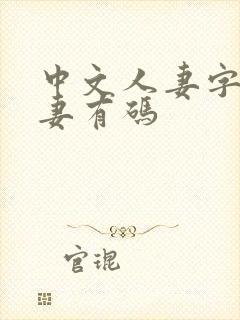 中文人妻字
妻有码
官琨